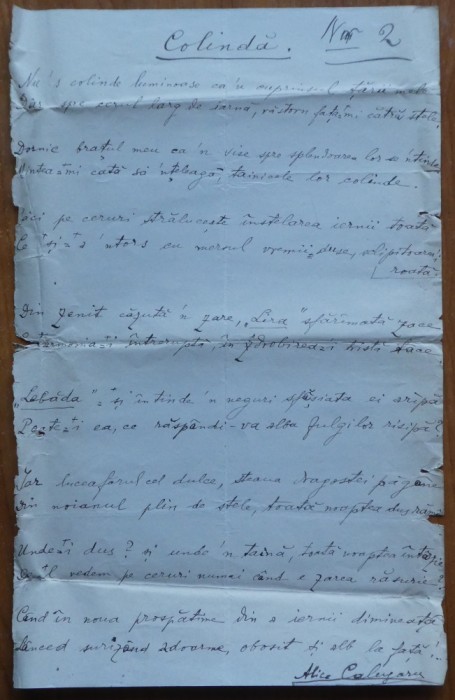 Colindă. No 2
Nu's colinde luminoase ca'n cuprinsul țării mele
spre cerul larg de iarnă, răstorn fața-mi către stele.
Dornic brațul meu ca'n vise spre splendoarea lor se 'ntinde
Mintea-mi cată să 'nțeleagă, tainicele lor colinde.
Aici pe ceruri strălucește înstelarea iernii toată
Ce și-a 'ntors cu mersul vremii-duse,
roată
Din zenit căzută 'n zare, „Lira" sfărîmată zace
Armonia-i întreruptă, în zdrobirea-i tristă tace
„Lebăda"-și întinde 'n neguri sfâșiata ei aripă
Peste-ți ea, ce răspândi-va alba fulgilor risipă!
Iar luceafărul cel dulce, steaua dragostei păgâne
Din noianul plin de stele, toată noaptea
Unde-i dus? și unde 'n taină, toată noaptea întârzie
vedem pe ceruri numai când e zarea răsurie?
Când în noua prospețime din a iernii dimineață
Lânced surizând adoarme, obosit și alb la față!..
Alice Călugăru